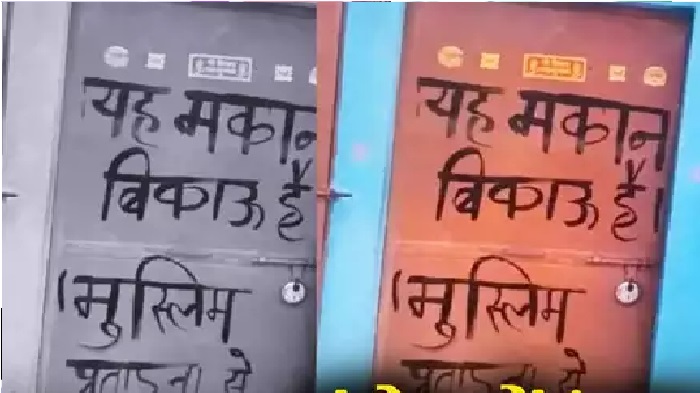 यह मकान
बिकाऊ है
(मुस्लिम
प्रताड़ना से
यह मकान
बिकाऊ है।
(मुस्लिम
प्रताड़ना से